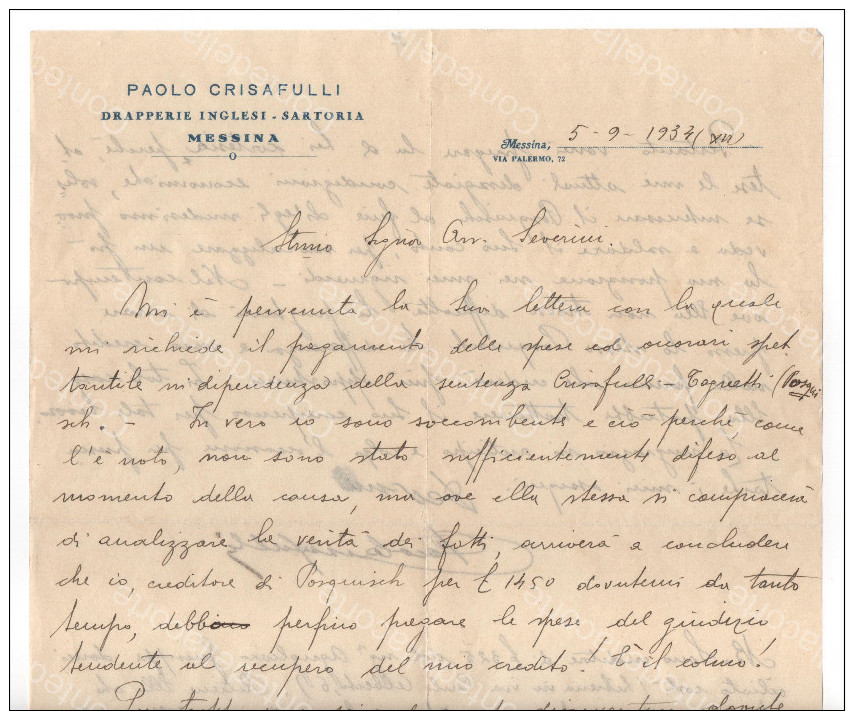 PAOLO CRISAFULLI
DRAPPERIE INGLESI - SARTORIA
MESSINA
Messina, 5-9-1934 (XII)
VIA PALERMO, 72
Stimo Signor Avv. Severini.
Mi è pervenuta la Sua lettera con la quale
mi richiede il pagamento delle spese ed onorari spet
tantile in dipendenza della sentenza Crisafulli - Tagnetti (Pasqui
sch. - In vero io sono soccombente e ciò perché, come
l'è noto, non sono stato sufficientemente difeso al
momento della causa, ma ove ella stessa si compiacerà
di analizzare la verità dei fatti, arriverà a concludere
che io, creditore di Pasquisch per £ 1450 dovutemi da tanto
tempo, debbo perfino pagare le spese del giudizio
tendente al recupero del mio credito! È il colmo!